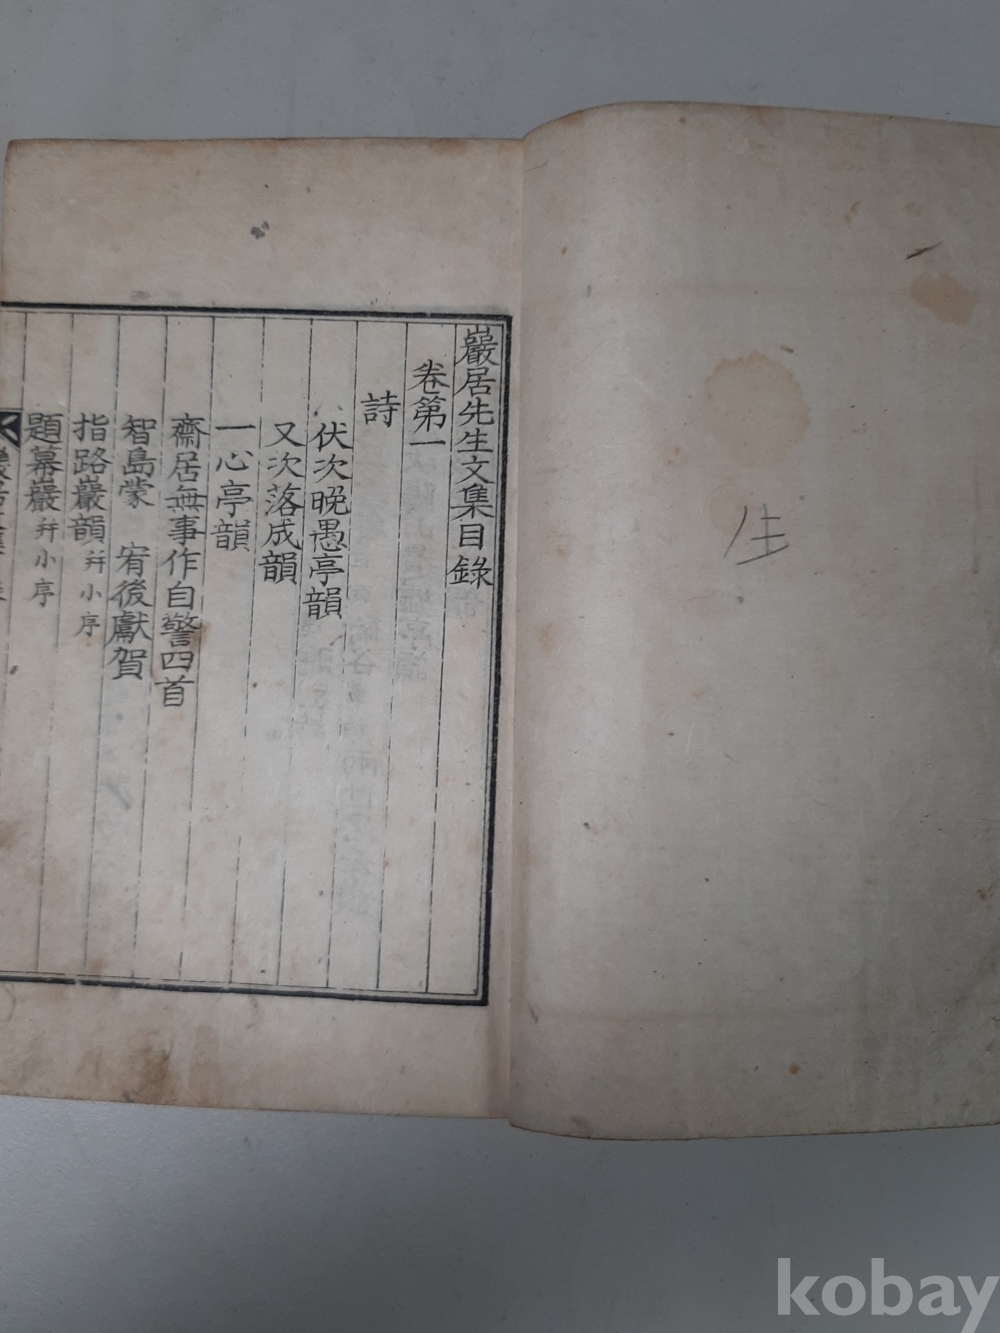 巖居先生文集目錄
卷第一
詩
伏次晩愚亭韻
又次落成韻
一心亭韻
齋居無事作自警四首
智島蒙 宥後獻賀
指路巖韻 幷小序
題幕巖 幷小序
生
kobay